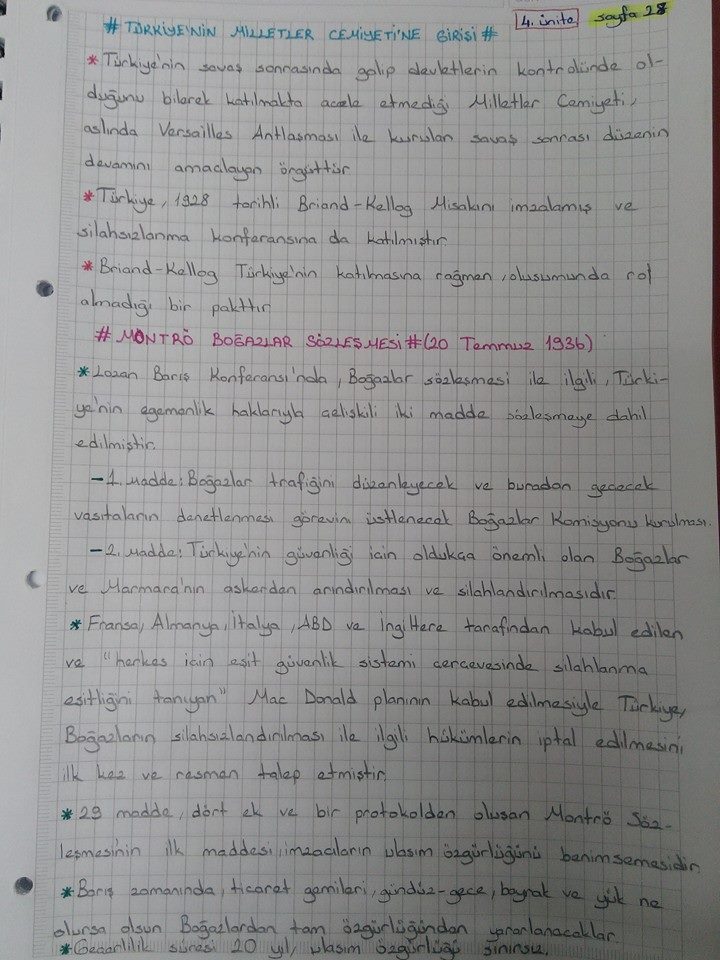 4. ünite sayfa 28
# TÜRKİYE'NİN MİLLETLER CEMİYETİ'NE GİRİŞİ #
* Türkiye'nin savaş sonrasında galip devletlerin kontrolünde ol-
duğunu bilerek katılmakta acele etmediği Milletler Cemiyeti,
aslında Versailles Antlaşması ile kurulan savaş sonrası düzenin
devamını amaçlayan örgüttür.
* Türkiye, 1928 tarihli Briand-Kellog Misakını imzalamış ve
silahsızlanma konferansına da katılmıştır.
* Briand-Kellog Türkiye'nin katılmasına rağmen, oluşumunda rol
almadığı bir pakttır.
# MONTRÖ BOĞAZLAR SÖZLEŞMESİ # (20 Temmuz 1936)
* Lozan Barış Konferansı'nda, Boğazlar sözleşmesi ile ilgili, Türki-
ye'nin egemenlik haklarıyla çelişkili iki madde sözleşmeye dahil
edilmiştir.
- 1. Madde: Boğazlar trafiğini düzenleyecek ve buradan geçecek
vasıtaların denetlenmesi görevini üstlenecek Boğazlar Komisyonu kurulması.
- 2. Madde: Türkiye'nin güvenliği için oldukça önemli olan Boğazlar
ve Marmara'nın askerden arındırılması ve silahlandırılmasıdır.
* Fransa, Almanya, İtalya, ABD ve İngiltere tarafından kabul edilen
ve "herkes için eşit güvenlik sistemi çerçevesinde silahlanma
eşitliğini tanıyan" Mac Donald planının kabul edilmesiyle Türkiye,
Boğazların silahsızlandırılması ile ilgili hükümlerin iptal edilmesini
ilk kez ve resmen talep etmiştir.
* 29 madde, dört ek ve bir protokolden oluşan Montrö Söz-
leşmesinin ilk maddesi, imzacıların ulaşım özgürlüğünü benimsemesidir.
* Barış zamanında, ticaret gemileri, gündüz-gece, bayrak ve yük ne
olursa olsun Boğazlardan tam özgürlüğünden yararlanacaklar.
* Geçerlilik süresi 20 yıl, ulaşım özgürlüğü sınırsız.